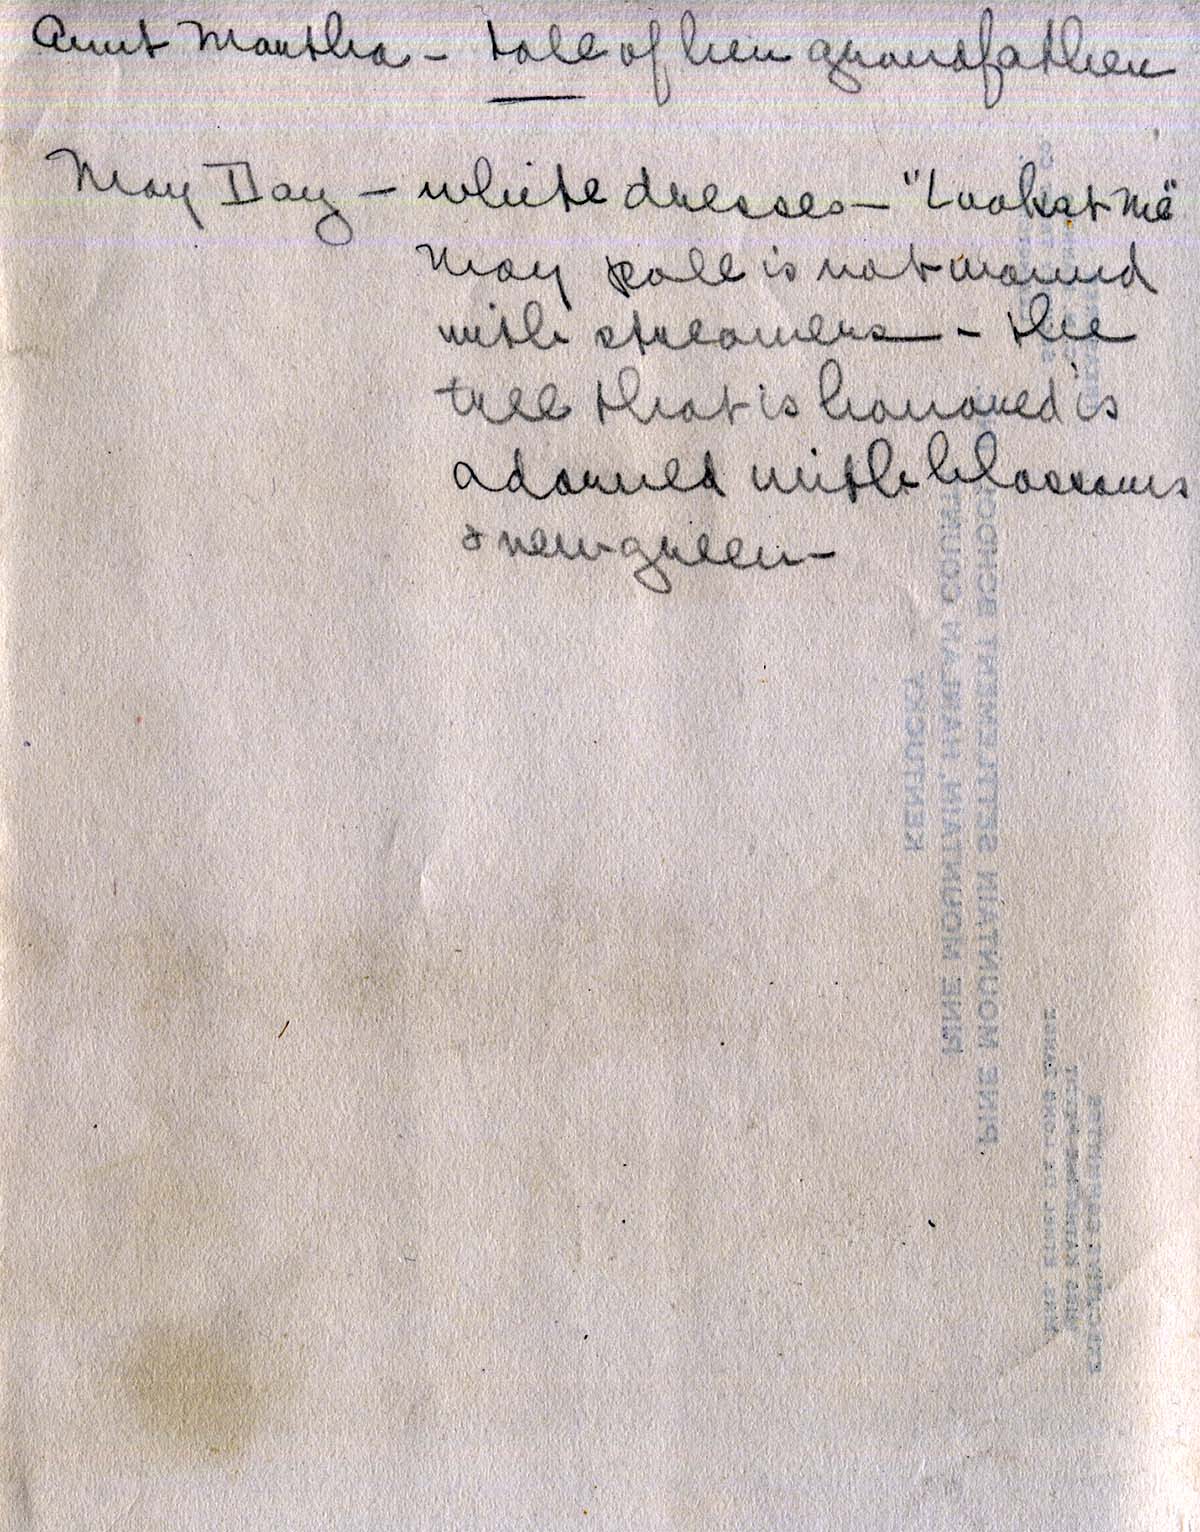 Aunt Martha - tale of her grandfather
May Day - white dresses - "Look at Me"
May pole is not wound
with streamers - the
tree that is honored is
adorned with blossoms
& new green -
PINE MOUNTAIN SETTLEMENT SCHOOL
PINE MOUNTAIN, HARLAN COUNTY
KENTUCKY
EXECUTIVE COMMITTEE
MISS KATHERINE PETTIT
MRS. ETHEL DE LONG ZANDE